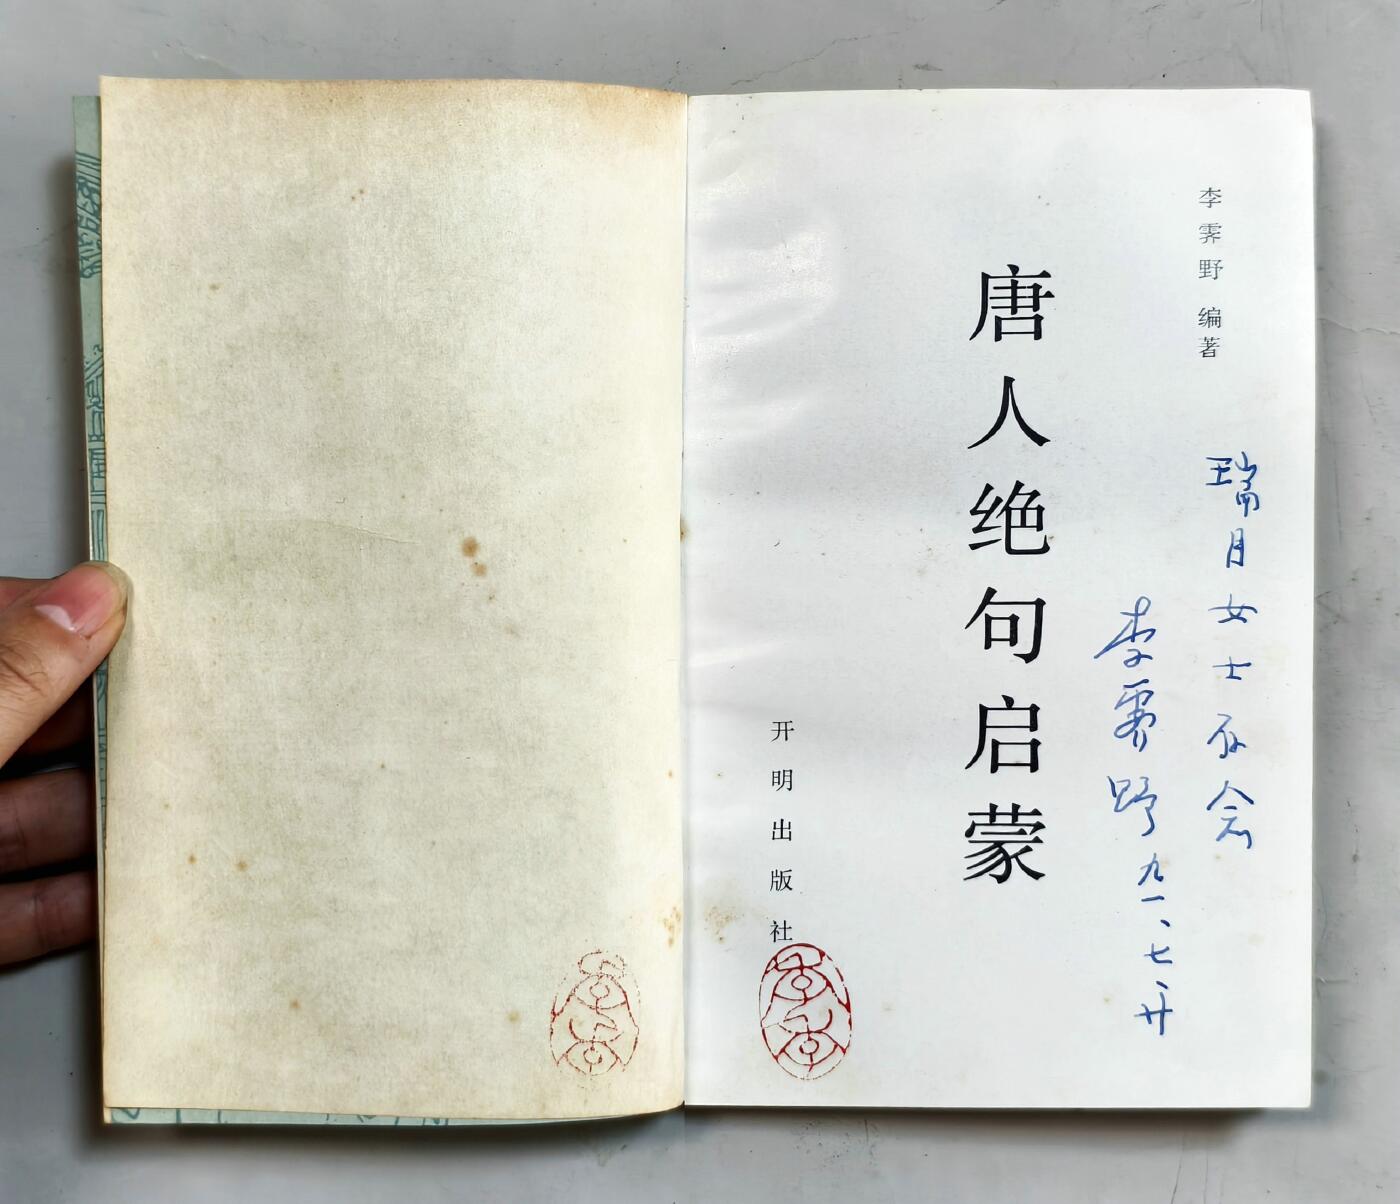 李霁野 编著
瑞月女士存念
李霁野 九一、七、廿
唐人绝句启蒙
开明出版社